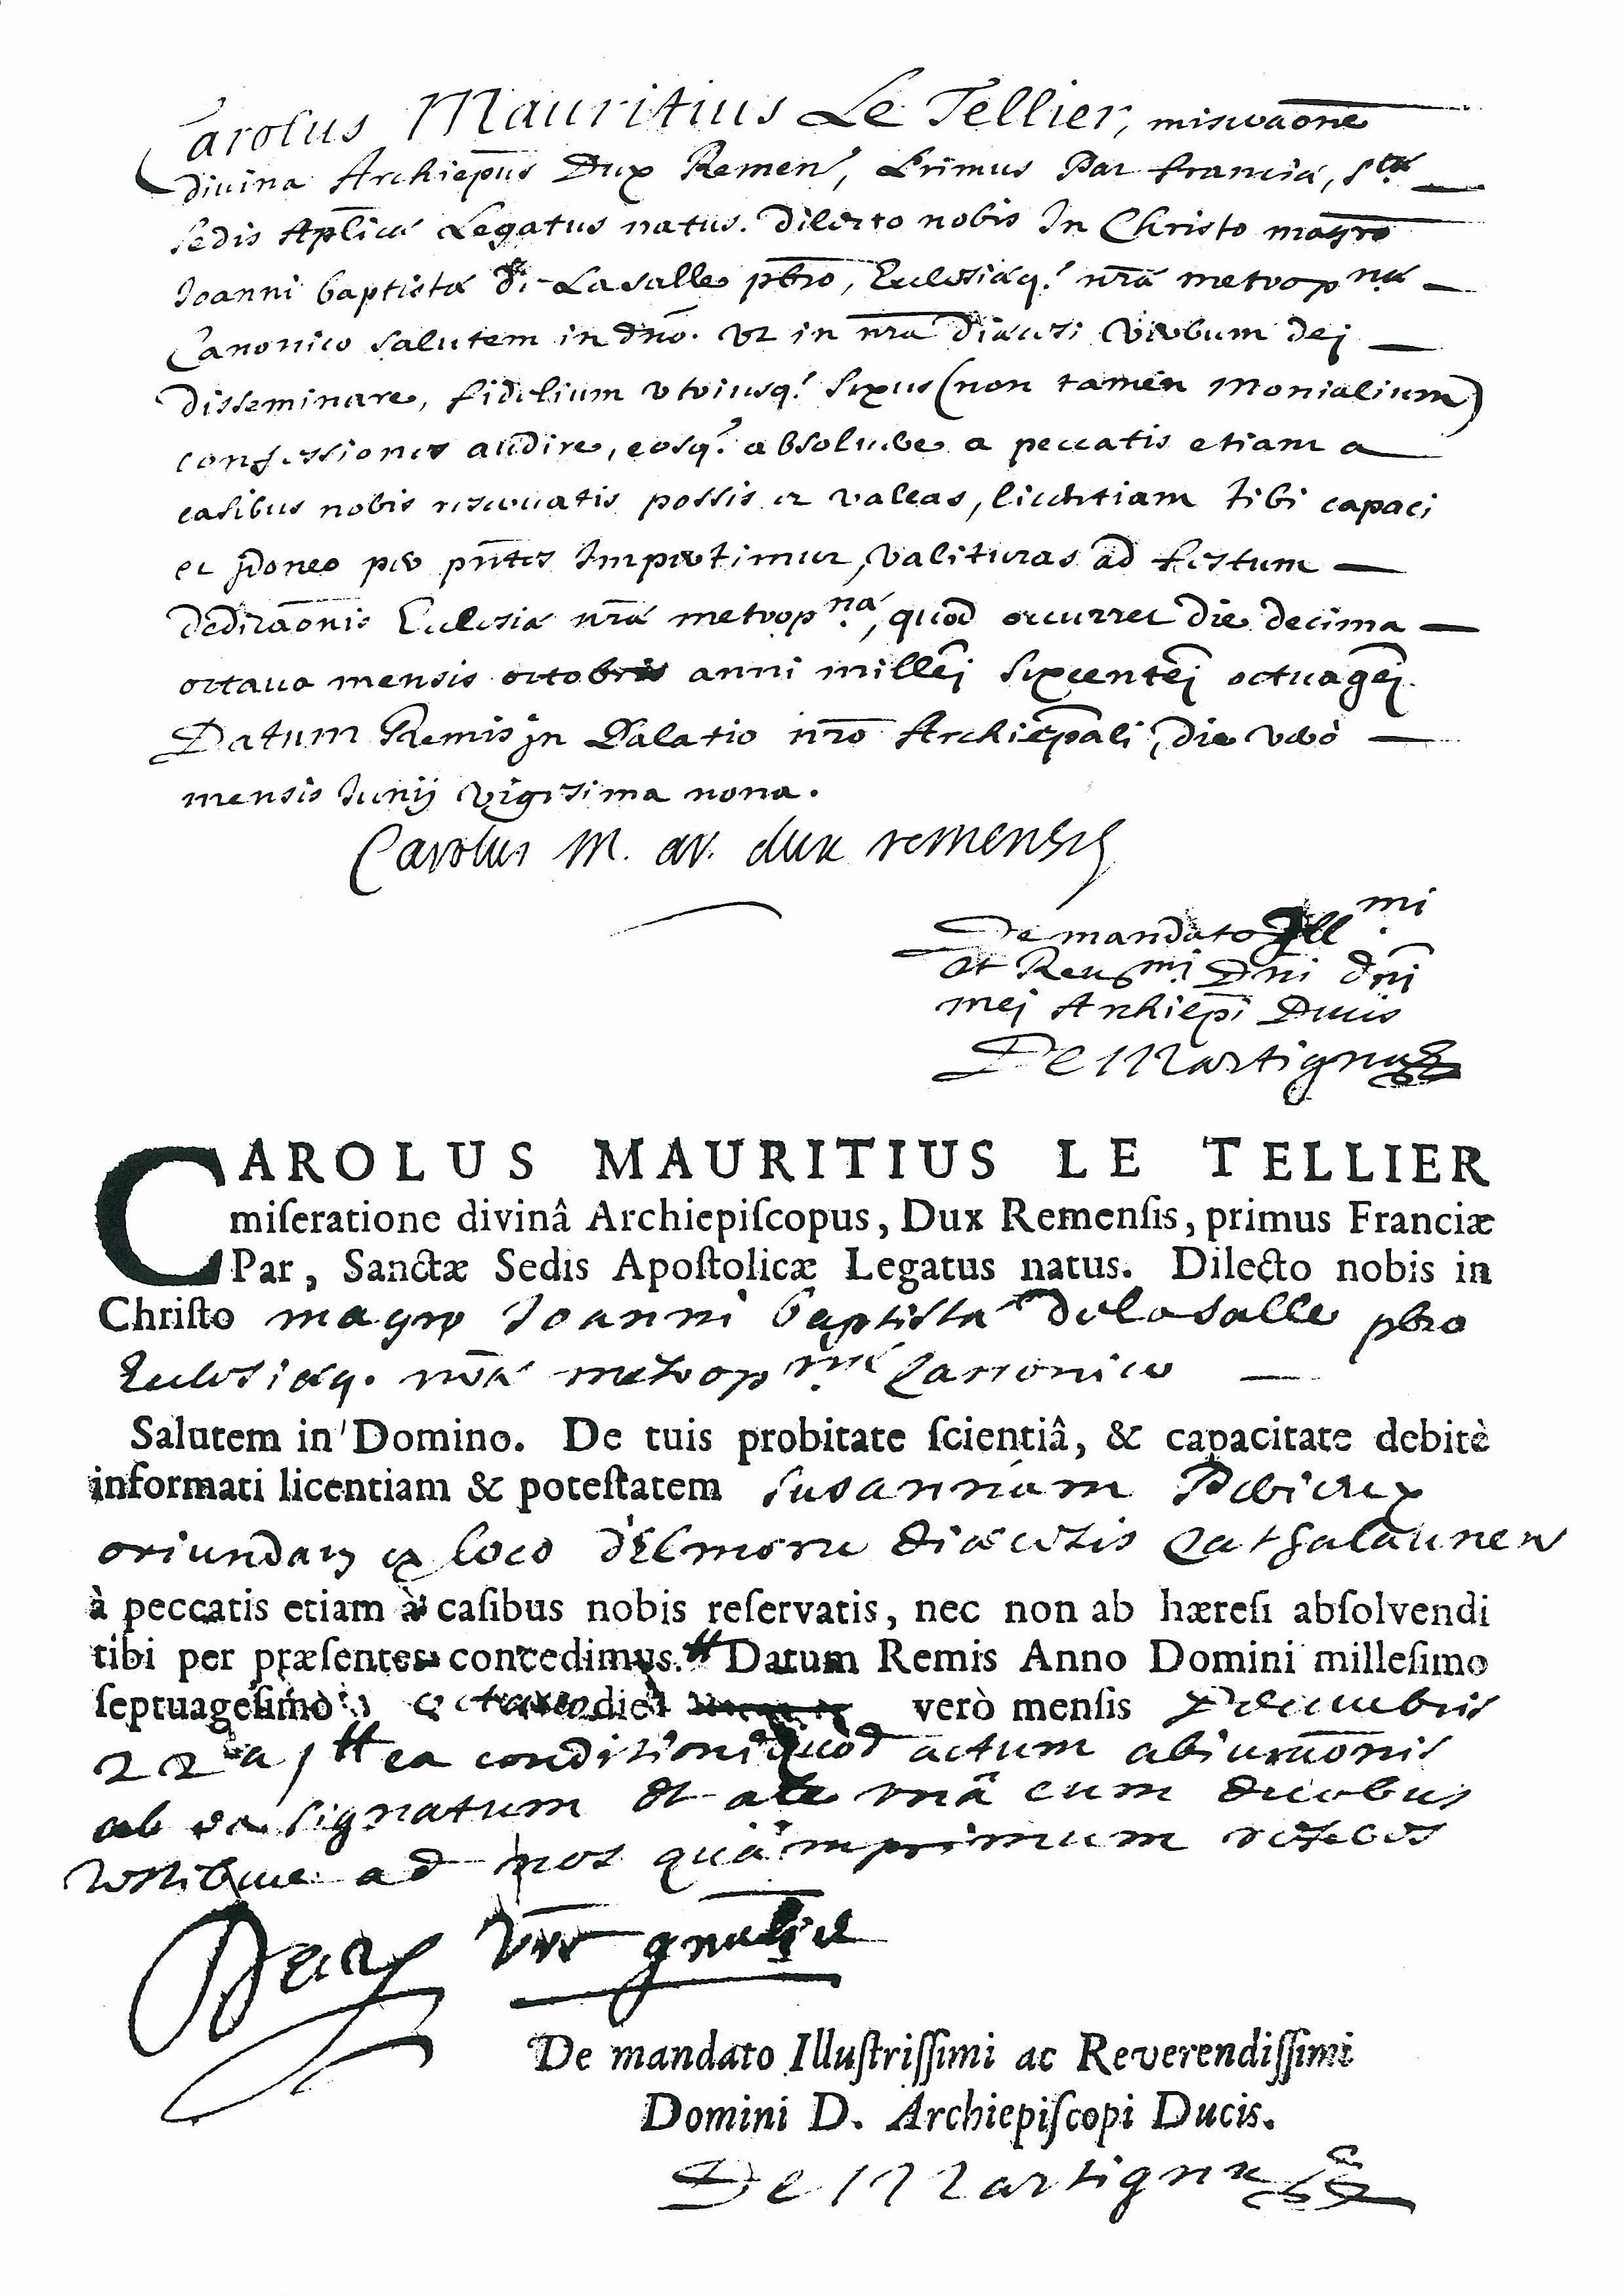 Carolus Mauritius Le Tellier, miseraōne
divina Archiep̄us Dux Remen', Primus Par Franciæ, Stæ
Sedis Ap̄licæ Legatus natus. Dilecto nobis In Christo magro
Joanni baptistæ de Lasalle pbro, Ecclesiæq; nr̄æ metropnæ
Canonico salutem in dn̄o. Ut in nr̄a diœcesi verbum dej
disseminare, fidelium utriusq; sexus (non tamen Monialium)
confessiones audire, eosq; absoluere a peccatis etiam a
casibus nobis reseruatis possis et valeas, licentiam tibi capaci
et jdoneo per pn̄tes Impertimur, valituras ad festum
dedicaōnis Ecclesiæ nr̄æ metropnæ, quod occurret die decima
octaua mensis octobris anni millej sexcentej octuagej.
Datum Remis jn Palatio nr̄o Archiēpali, die verò
mensis Junij vigesima nona.
Carolus M. ar. dux remensis
De mandato Illmi
et Reuermi Dn̄i dn̄i
mej Archiep̄i Ducis
De Martigny
CAROLUS MAURITIUS LE TELLIER
miſeratione divinâ Archiepiſcopus, Dux Remenſis, primus Franciæ
Par, Sanctæ Sedis Apoſtolicæ Legatus natus. Dilecto nobis in
Chriſto magro Joanni baptistæ delasalle pbro
Ecclesiæq. nr̄æ metropnæ Canonico
Salutem in Domino. De tuis probitate ſcientiâ, & capacitate debitè
informati licentiam & poteſtatem Susannam
oriundam ex loco diœcesis Cathalaunen
à peccatis etiam à caſibus nobis reſervatis, nec non ab hæreſi abſolvendi
tibi per præſentes concedimus. # Datum Remis Anno Domini milleſimo
ſeptuageſimo octavo die verò menſis Decembris
22a / # ea conditione quod actum abiuraōnis
ab ea signatum et a te unā cum duobus
testibus ad nos quàmprimum referes
vic gn̄alis
De mandato Illuſtriſſimi ac Reverendiſſimi
Domini D. Archiepiſcopi Ducis.
De Martigny